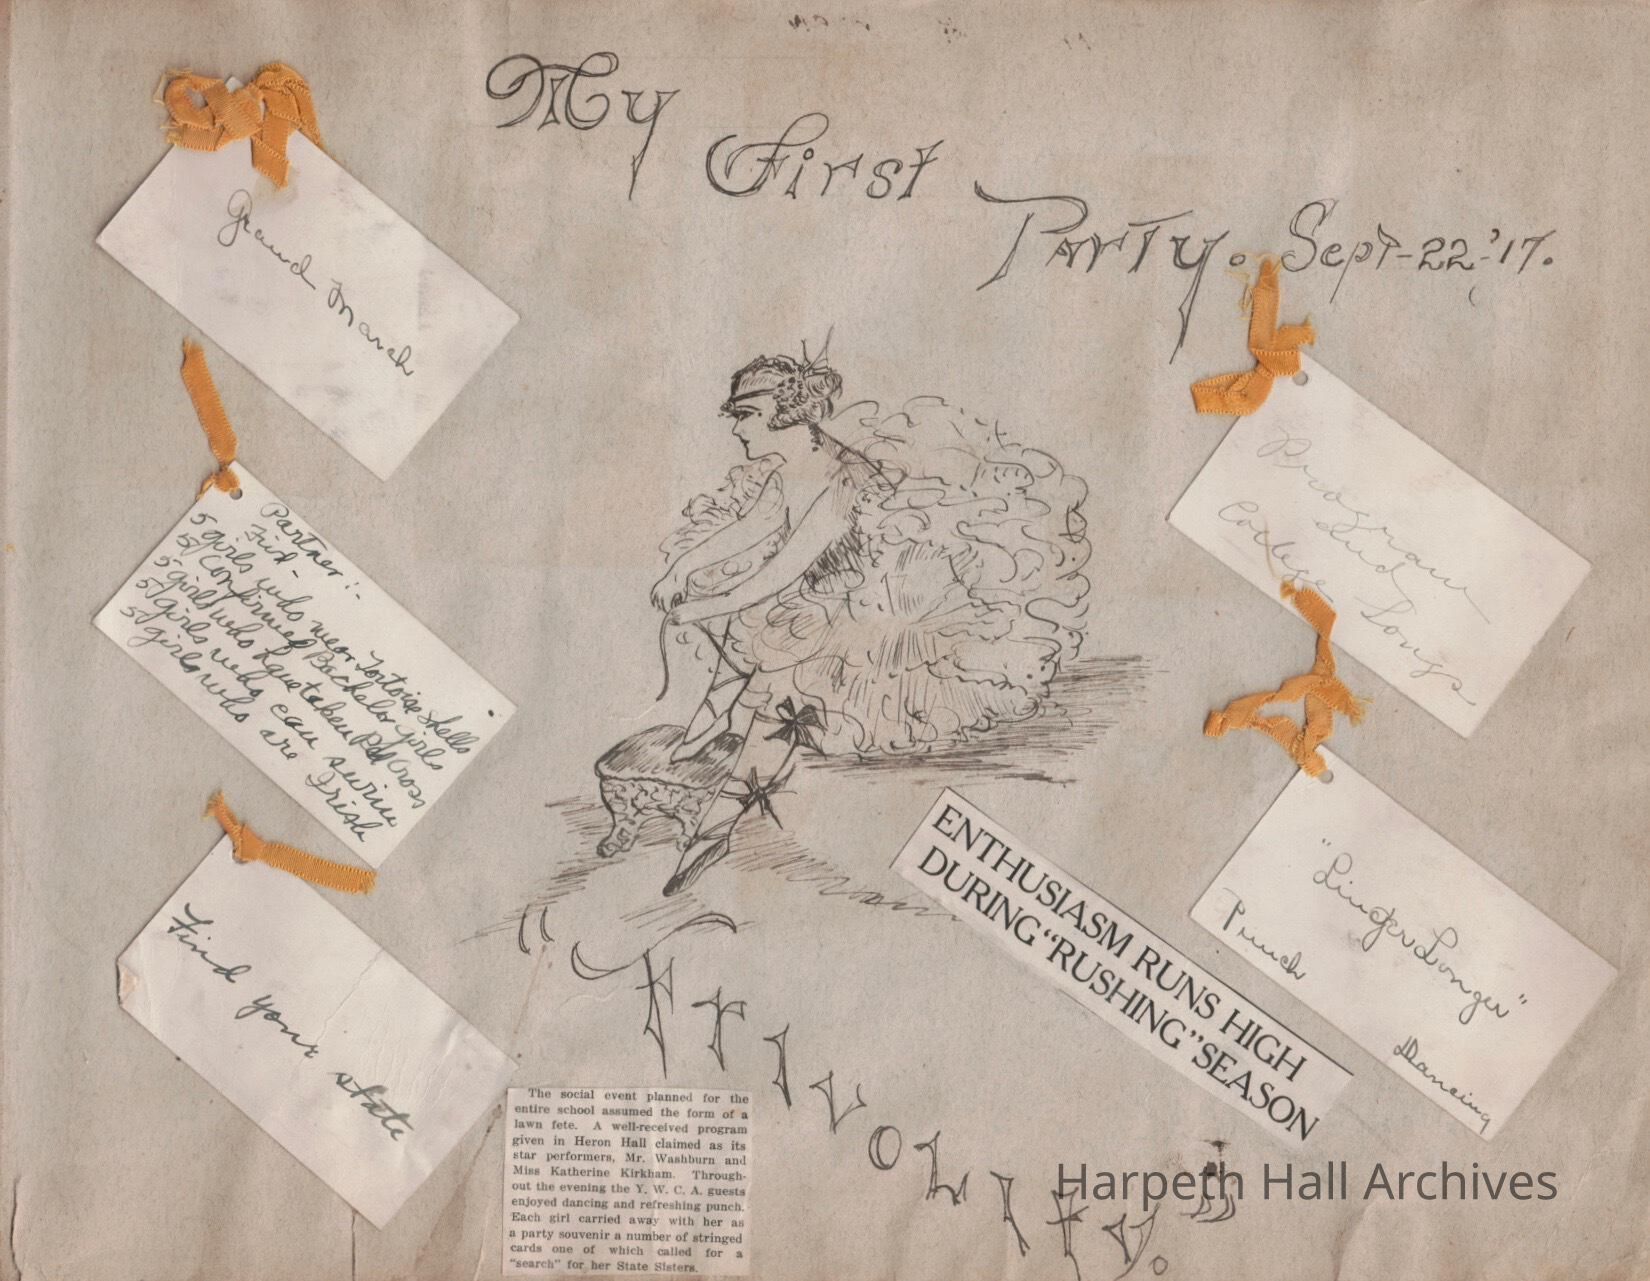 My First Party. Sept-22-'17.
Grand March
Partner:-
Find -
5 girls who wear Tortoise Shells
57 Confirmed Bachelor girls
5 girls who have taken Red Cross
57 girls who can swim
50 girls who are Irish
Find your state
Program
and
College Songs
"Linger Longer"
Punch
Dancing
ENTHUSIASM RUNS HIGH
DURING "RUSHING" SEASON
"Frivolity."
The social event planned for the
entire school assumed the form of a
lawn fete. A well-received program
given in Heron Hall claimed as its
star performers, Mr. Washburn and
Miss Katherine Kirkham. Through-
out the evening the Y. W. C. A. guests
enjoyed dancing and refreshing punch.
Each girl carried away with her as
a party souvenir a number of stringed
cards one of which called for a
"search" for her State Sisters.
Harpeth Hall Archives